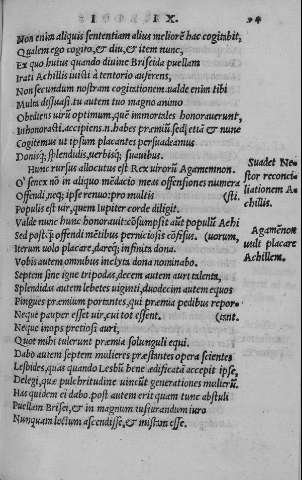 I X. 94
Non enim aliquis sententiam alius meliorē hac cogitabit,
Qualem ego cogito, & diu, & item nunc,
Ex quo huius quando diuine Briseida puellam
Irati Achillis iuisti à tentorio auferens,
Non secundum nostram cogitationem. ualde enim tibi
Multa dissuasi. tu autem tuo magno animo
Obediens uirū optimum, quē immortales honorauerunt,
Inhonorasti. accipiens. n. habes præmiū sed, etiā & nunc
Cogitemus ut ipsum placantes persuadeamus
Donisq; splendidis, uerbisq; suauibus.
Hunc rursus allocutus est Rex uirorū Agamemnon.
O' senex nō in aliquo mēdacio meas offensiones numera
Offendi, neq; ipse renuo: pro multis (sti.
Populis est uir, quem Iupiter corde diligit.
Valde nunc hunc honorauit: cōsumpsit aūt populū Achi
Sed postq̄ offendi mētibus pernitiosis cōfisus. (uorum,
Iterum uolo placare, dareq; infinita dona.
Vobis autem omnibus inclyta dona nominabo.
Septem sine igne tripodas, decem autem auri talenta,
Splendidas autem lebetes uiginti, duodecim autem equos
Pingues præmium portantes, qui præmia pedibus repor-
Neque pauper esset uir, cui tot essent. (tant.
Neque inops pretiosi auri,
Quot mihi tulerunt præmia solunguli equi.
Dabo autem septem mulieres præstantes opera scientes
Lesbides, quas quando Lesbū bene ædificatā accepit ipse,
Delegi, quæ pulchritudine uincūt generationes mulierū.
Has quidem ei dabo. post autem erit quam tunc abstuli
Puellam Brisei, & in magnum iusiurandum iuro
Nunquam lectum ascendisse, & mistam esse.
Suadet Ne-
stor reconci-
liationem A-
chillis.
Agamēnon
uult placare
Achillem.